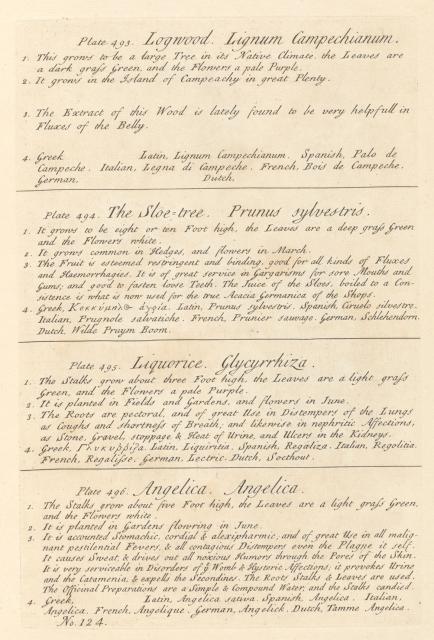 Plate 493. Logwood. Lignum Campechianum.
1. This grows to be a large Tree in its Native Climate, the Leaves are
a dark grass Green, and the Flowers a pale Purple.
2. It grows in the Island of Campeachy in great Plenty.
3. The Extract of this Wood is lately found to be very helpfull in
Fluxes of the Belly.
4. Greek Latin, Lignum Campechianum. Spanish, Palo de
Campeche. Italian, Legna di Campeche. French, Bois de Campeche.
German, Dutch,
Plate 494. The Sloe=tree. Prunus sylvestris.
1. It grows to be eight or ten Foot high, the Leaves are a deep grass Green
and the Flowers white.
2. It grows common in Hedges, and flowers in March.
3. The Fruit is esteemed restringent and binding, good for all kinds of Fluxes
and Haemorrhagies. It is of great service in Gargarisms for sore Mouths and
Gums; and good to fasten loose Teeth. The Juice of the Sloes, boiled to a Con-
sistence is what is now used for the true Acacia Germanica of the Shops.
4. Greek, Latin, Prunus sylvestris. Spanish, Ciruelo silvestre.
Italian, Prugnole salvatiche. French, Prunier sauvage. German, Schlehendorn.
Dutch, Wilde Pruym Boom.
Plate 495. Liquorice. Glycyrrhiza.
1. The Stalks grow about three Foot high, the Leaves are a light grass
Green, and the Flowers a pale Purple.
2. It is planted in Fields and Gardens, and flowers in June.
3. The Roots are pectoral, and of great Use in Distempers of the Lungs
as Coughs and shortness of Breath; and likewise in nephritic Affections,
as Stone, Gravel, stoppage & Heat of Urine, and Ulcers in the Kidneys.
4. Greek, Γλυκυῤῥίζα. Latin, Liquiritia, Spanish, Regaliza. Italian, Regolitia.
French, Regalisse. German, Lectric. Dutch, Soethout.
Plate 496. Angelica. Angelica.
1. The Stalks grow about five Foot high, the Leaves are a light grass Green,
and the Flowers white.
2. It is planted in Gardens flowring in June.
3. It is accounted Stomachic, cordial & alexipharmic, and of great Use in all malig-
nant pestilential Fevers, & all contagious Distempers even the Plague it self.
It causes Sweat, & drives out all noxious Humors through the Pores of the Skin.
It is very serviceable in Disorders of ye Womb & Hysteric Affections; it provokes Urine
and the Catamenia, & expells the Secondines. The Roots Stalks & Leaves are used.
The Officinal Preparations are a Simple & Compound Water, and the Stalks candied.
4. Greek, Latin, Angelica sativa. Spanish, Angelica. Italian,
Angelica. French, Angelique. German, Angelick. Dutch, Tamme Angelica.
No. 124.